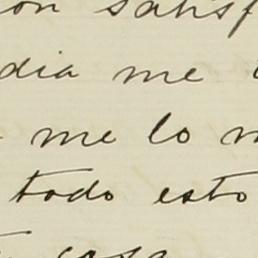 on satisf
dia me
me lo
todo esto
cosa